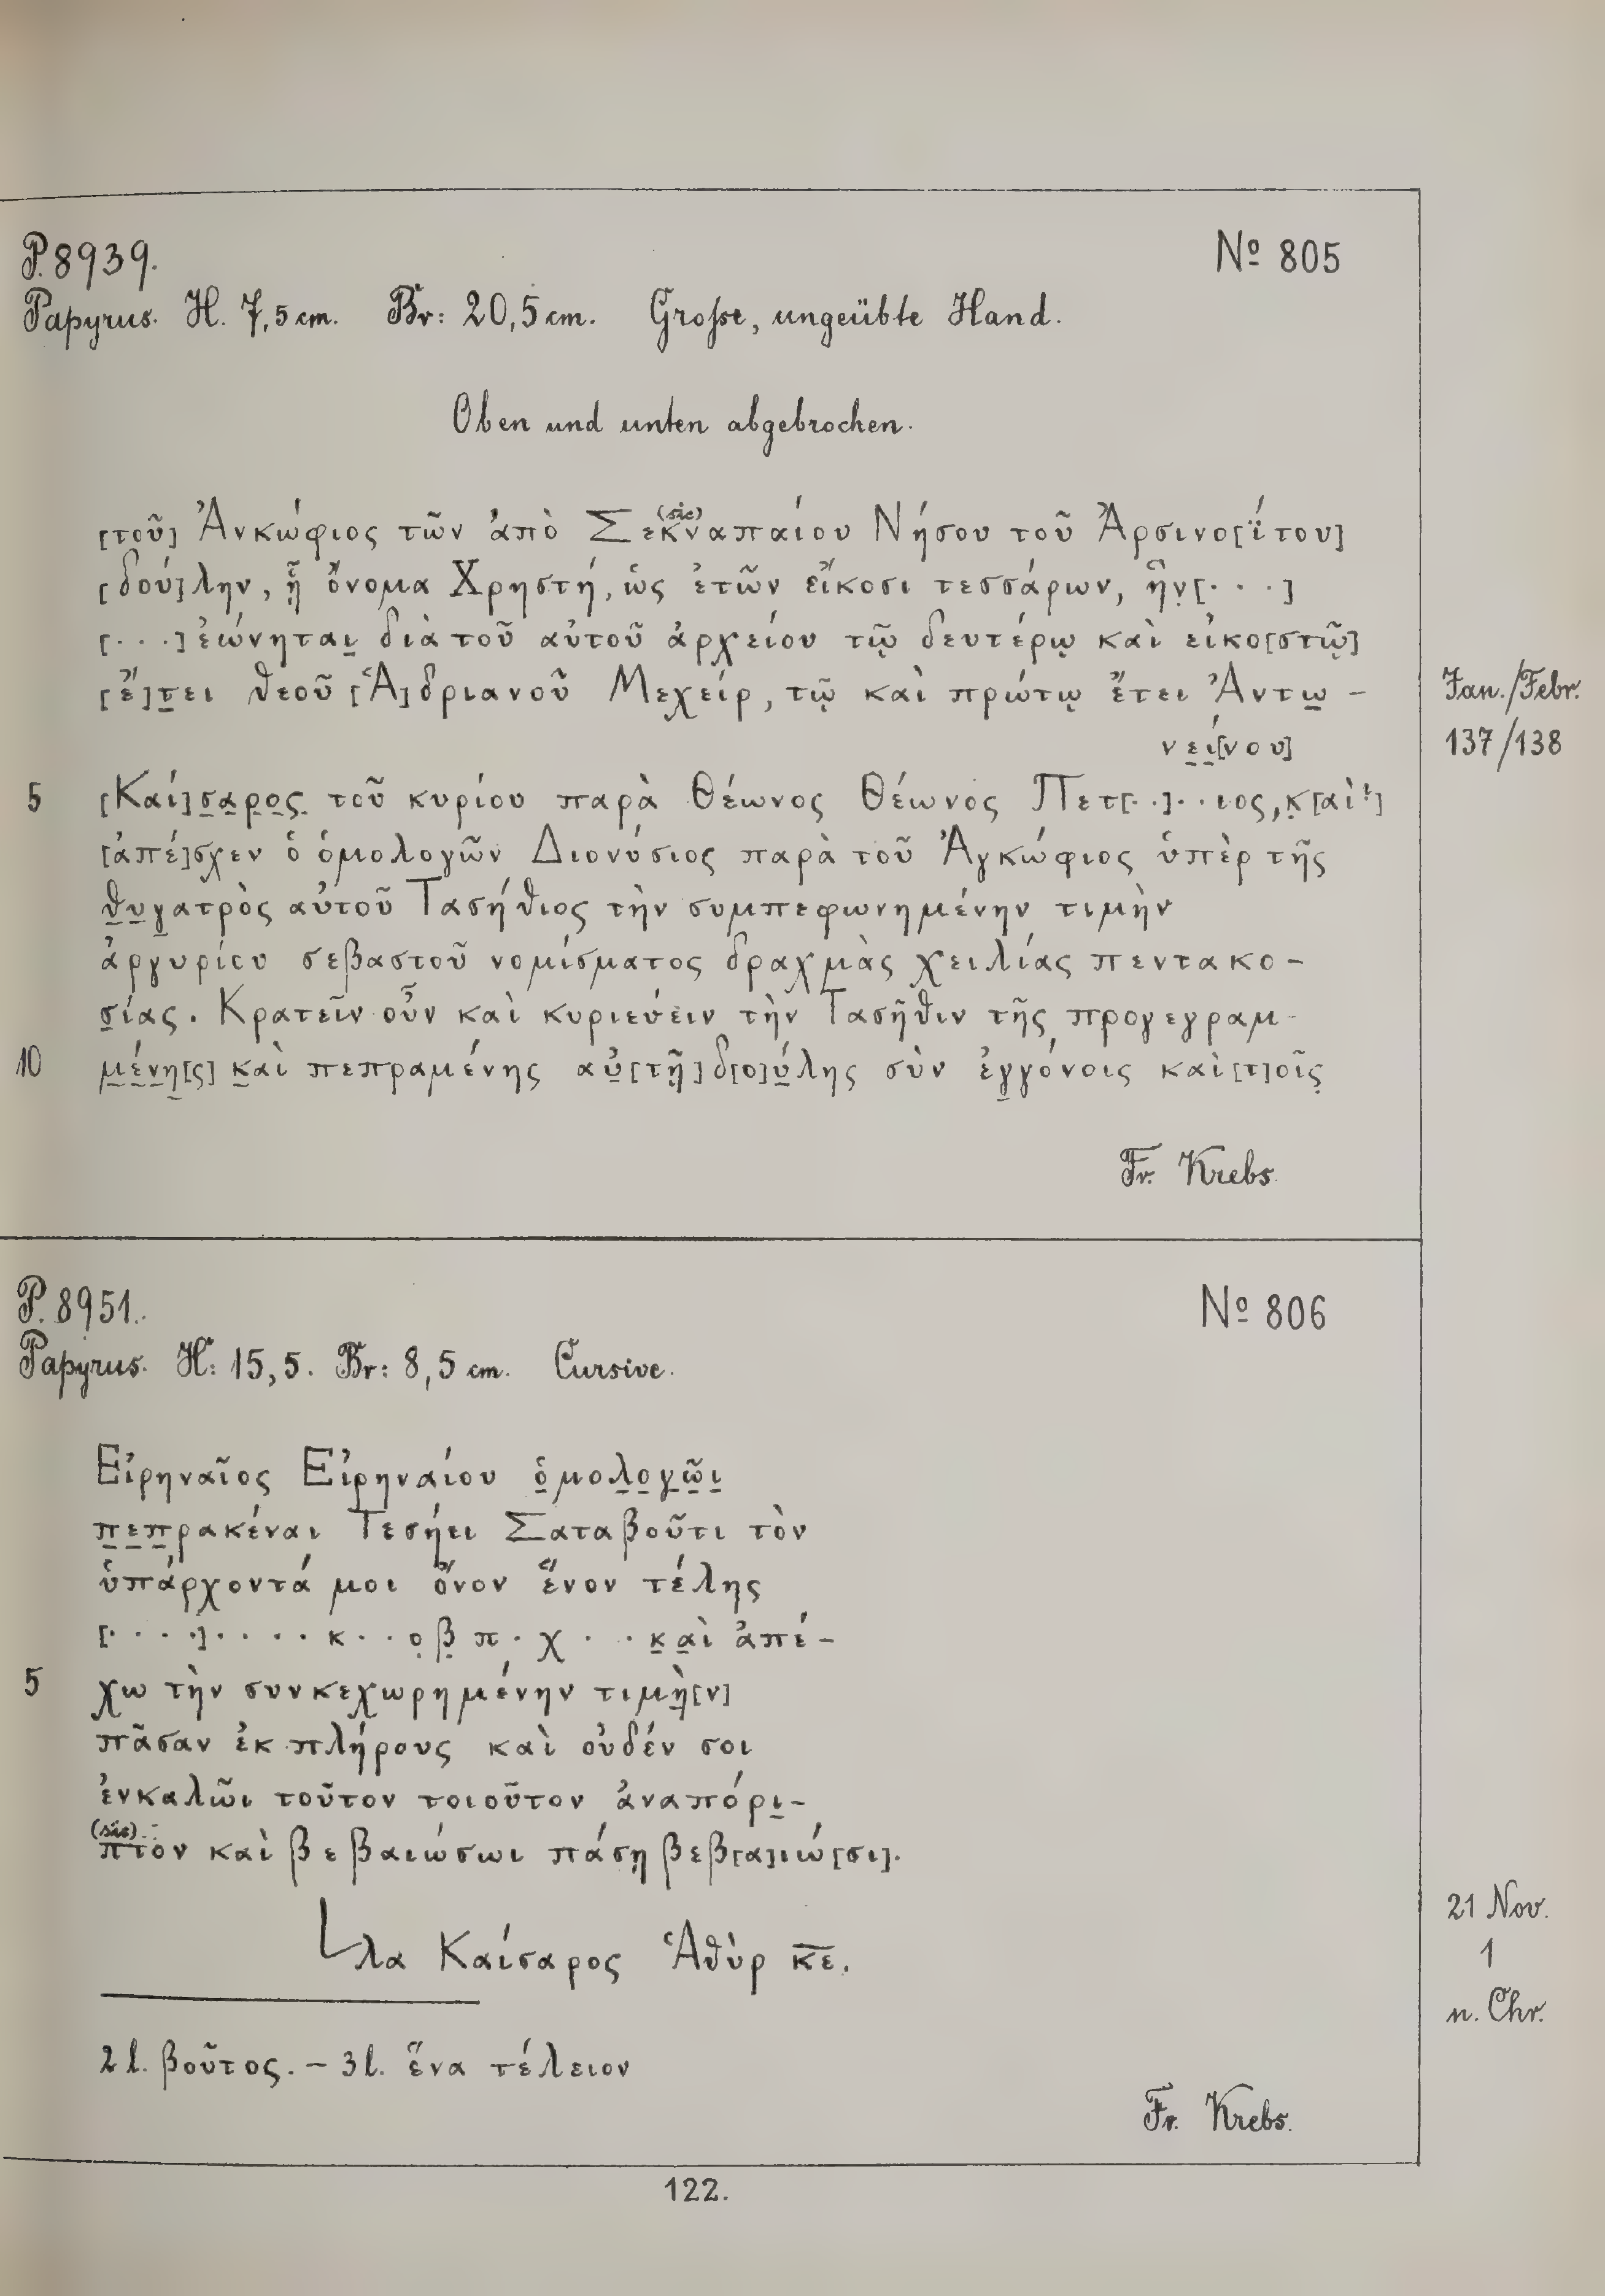 P. 8939. № 805
Papyrus. H. 7,5 cm. Br: 20,5 cm. Große, ungeübte Hand.
Oben und unten abgebrochen.
[τοῦ] Ἀνκώφιος τῶν ἀπὸ Σεκναπαίου (sic) Νήσου τοῦ Ἀρσινο[ΐτου]
[δού]λην, ᾗ ὄνομα Χρηστή, ὡς ἐτῶν εἴκοσι τεσσάρων, ἣν̣[· · ·]
[· · ·] ἐώνηται̣ διὰ τοῦ αὐτοῦ ἀρχείου τῷ δευτέρῳ καὶ εἰκο[στῷ]
[ἔ]τ̣ει θεοῦ [Ἁ]δριανοῦ Μεχείρ, τῷ καὶ πρώτῳ ἔτει Ἀντω̣ –
νε̣ί̣[νου]
Jan./Febr.
137/138
5 [Καί]σ̣α̣ρ̣ο̣ς̣ τοῦ κυρίου παρὰ Θέωνος Θέωνος Πετ[· ·]· · ιος, κ̣[αὶ!]
[ἀπέ]σ̣χεν ὁ ὁμολογῶν Διονύσιος παρὰ τοῦ Ἀγκώφιος ὑπὲρ τῆς
θ̣υ̣γ̣ατρὸς αὐτοῦ Τασήθιος τὴν συμπεφωνημένην τιμὴν
ἀργυρίου σεβαστοῦ νομίσματος δραχμὰς χειλίας πεντακο –
σ̣ίας. Κρατεῖν οὖν καὶ κυριεύειν τὴν Τασῆθιν τῆς προγεγραμ –
10 μ̣έ̣ν̣η̣[ς] κ̣αὶ πεπραμένης αὐ̣[τῇ] δ[ο]ύ̣λης σὺν ἐγ̣γόνοις καὶ [τ]οῖς̣
Fr. Krebs.
P. 8951. № 806
Papyrus. H: 15,5. Br: 8,5 cm. Cursive.
Εἰρηναῖος Εἰρηναίου ὁ̣μολ̣ο̣γ̣ῶ̣ι̣
π̣ε̣π̣ρακέναι Τεσήει Σαταβοῦτι τὸν
ὑπάρχοντά μοι ὄνον ἕνον τέλης
[· · · ·]· · · · κ · · ο̣β̣ π · χ · · · κ̣α̣ὶ ἀπέ –
5 χω τὴν συνκεχωρημένην τιμὴ̣[ν]
πᾶσαν ἐκ πλήρους καὶ οὐδέν σοι
ἐνκαλῶι τοῦτον τοιοῦτον ἀναπόρι̣ –
(sic) πτον καὶ βεβαιώσωι πάσῃ βεβ[α]ιώ[σι].
L λα Καίσαρος Ἁθὺρ κ̅ε̅.
21 Nov.
1
n. Chr.
2 l. βοῦτος. – 3 l. ἕνα τέλειον
Fr. Krebs.
122.